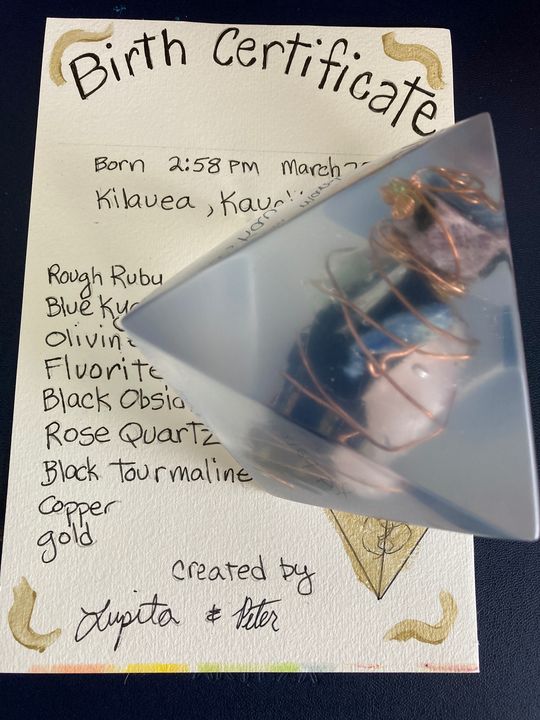 Birth Certificate
Born 2:58 PM March
Kilauea,
Rough Ruby
Blue
Fluorite
Black
Rose Quartz
Black Tourmaline
Copper
gold
created by
Lupita & Peter